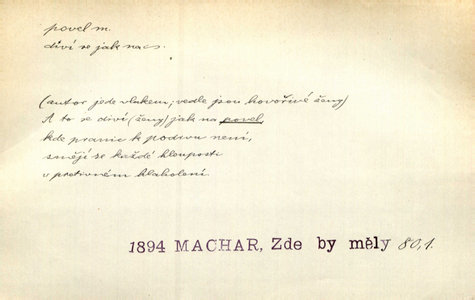 povel m.
diví se jak na cs.
(autor jede vlakem; vedle jsou hovořivé ženy)
A to se diví (ženy) jak na povel,
kde pranic k podivu není,
smějí se každé hlouposti
v protivném klaholení.
1894 MACHAR, Zde by měly 80,1.